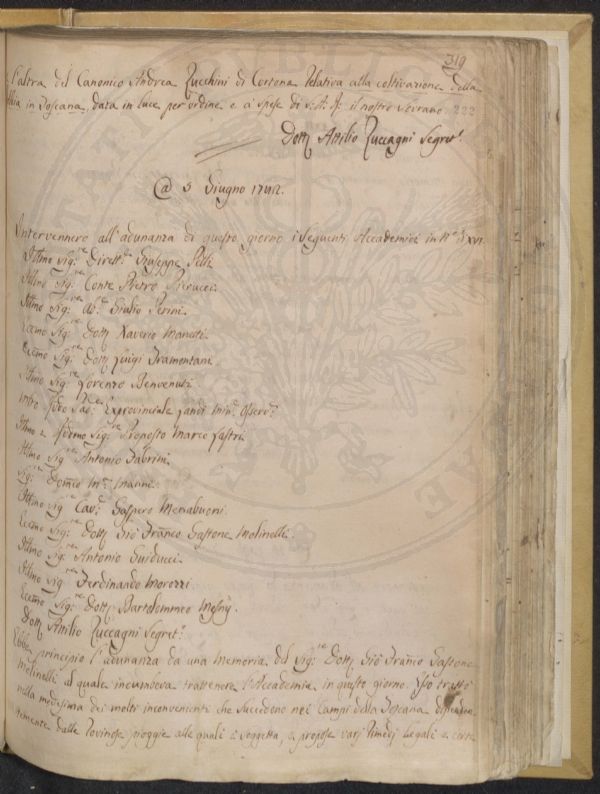 319
e l'altra del Canonico Andrea Zucchini di Cortona relativa alla coltivazione della
in Toscana, data in luce per ordine e a spese di S: A: R: il nostro Sovrano. 222
Dott. Attilio Zuccagni Segret.
@ 5 Giugno
Intervennero all'adunanza di questo giorno i seguenti Accademici in N.° XVI.
Illmo Sig.re Dirett.re Giuseppe Pelli
Illmo Sig.re Conte Pietro Pierucci.
Illmo Sig. Ab.e Giulio Perini.
Eccmo Sig.re Dott. Xaverio Manetti.
Eccmo Sig.re Dott. Luigi Tramontani.
Illmo Sig.re Lorenzo Benvenuti.
Exprovinciale Min. Osserv.
Illmo e Sig.re Proposto Marco Lastri
Illmo Sig.re Antonio Fabrini.
Sig.re Domco M.a Manni.
Illmo Sig.re Cav. Gaspero Menabuoni.
Eccmo Sig.re Dott. Gio Franco Gastone Molinelli.
Illmo Sig.re Antonio Guiducci.
Illmo Sig.re Ferdinando Morozzi.
Eccmo Sig.re Dott. Bartolommeo Mesny.
Dott. Attilio Zuccagni Segret.
Ebbe principio l'adunanza da una Memoria del Sig.re Dott. Gio Franco Gastone
Molinelli al quale incumbeva trattenere l'Accademia in questo giorno. Esso trattò
nella medesima dei molti inconvenienti che succedono nei Campi della Toscana dependen
temente dalle rovinose pioggie alle quali è soggetta, e propose varj rimedj legali e